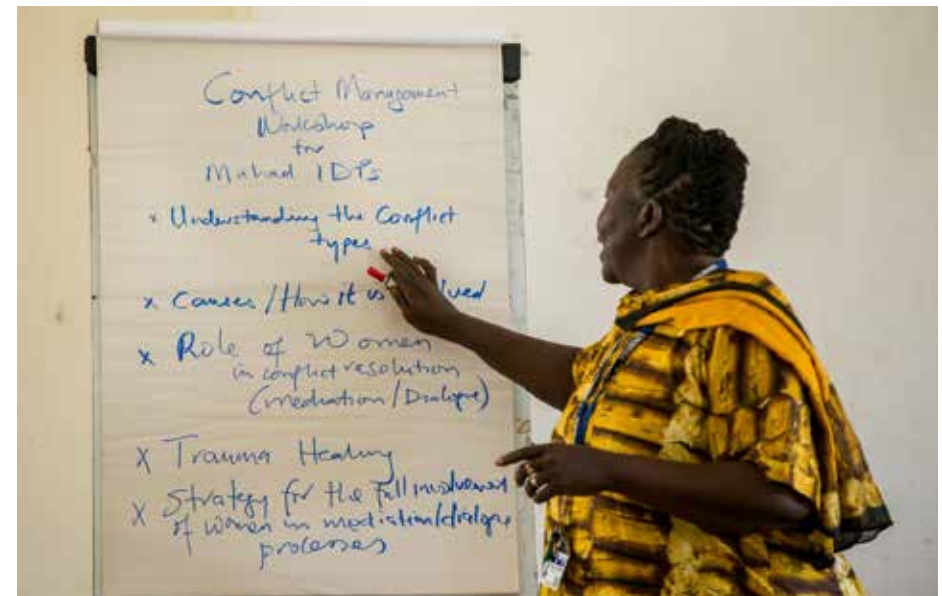 Conflict Management
Workshop
for
Mahad IDPs
x Understanding the Conflict
types
x Causes / How it is
x Role of Women
in conflict resolution
(mediation / Dialogue)
X Trauma Healing
X Strategy for the full involvement
of women in mediation/dialogue
processes